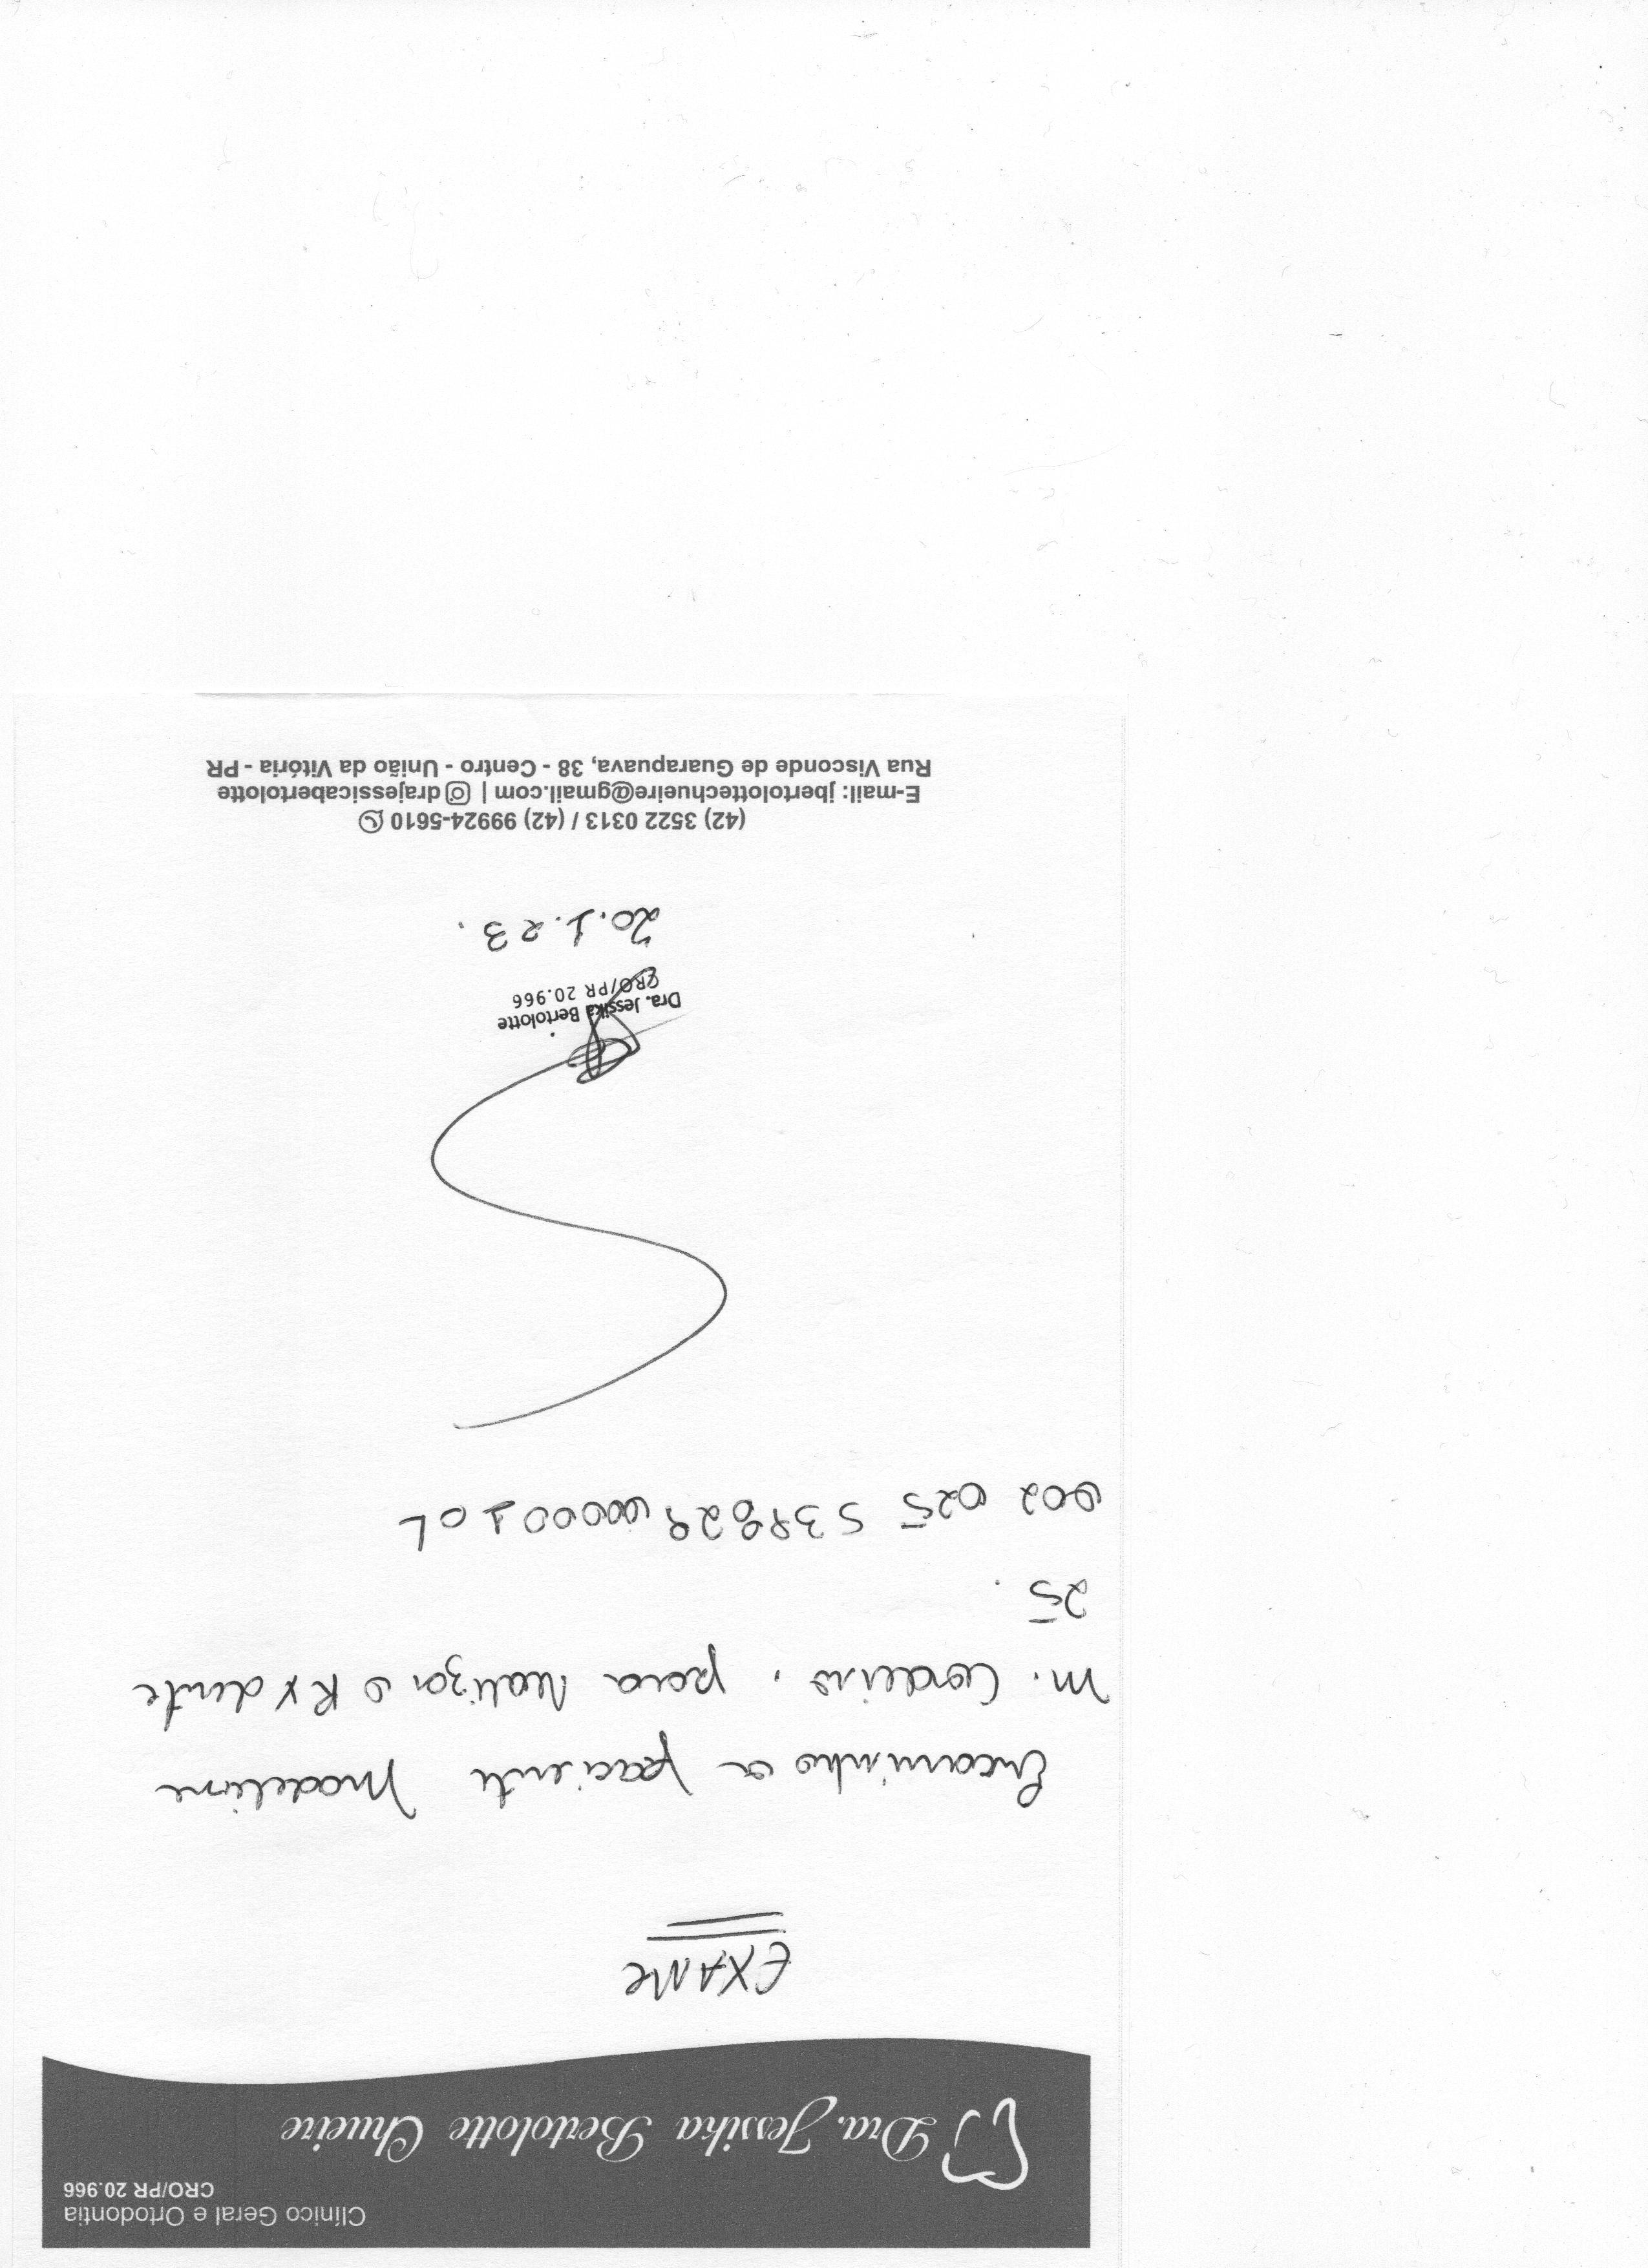 Clínico Geral e Ortodontia
CRO/PR 20.966
Dra. Jessika Bertolotte Chueire
EXAME
Encaminho a paciente Madeline
M. Cordeiro, para realizar o RX dente
25.
002 025 539829 00000 1 0
Dra. Jessika Bertolotte
CRO/PR 20.966
20.1.23.
(42) 3522 0313 / (42) 99924-5610
E-mail: jbertolottechueire@gmail.com | drajessicabertolotte
Rua Visconde de Guarapuava, 38 - Centro - União da Vitória - PR